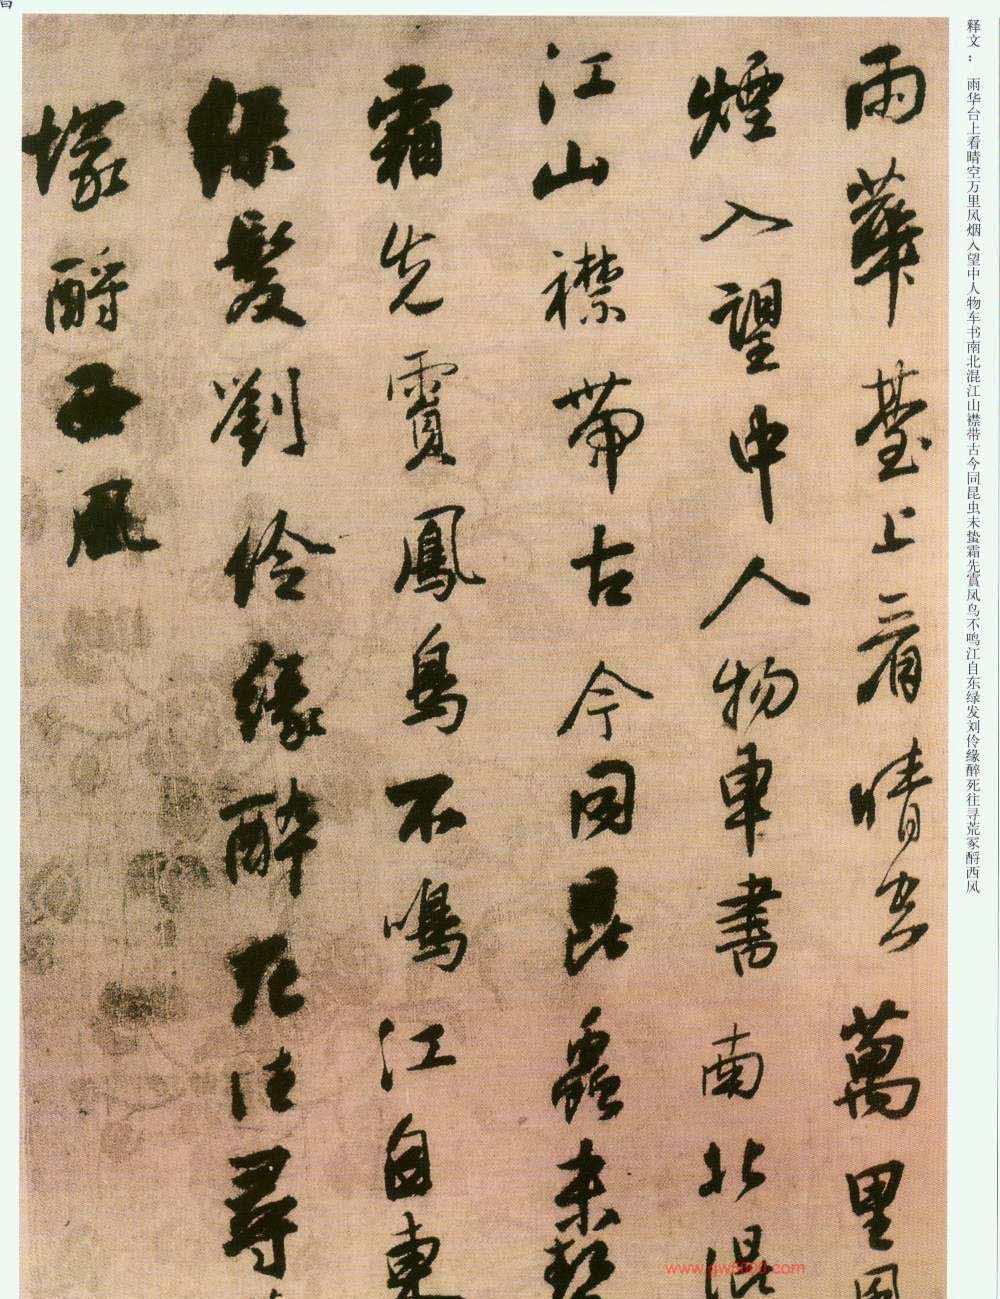 雨華臺上看晴空萬里風
煙入望中人物車書南北混
江山襟帶古今同昆蟲未蟄
霜先賨鳳鳥不鳴江自東
綠髮劉伶緣醉死往尋
塚酹西風
释文： 雨华台上看晴空万里风烟入望中人物车书南北混江山襟带古今同昆虫未蛰霜先賨凤鸟不鸣江自东绿发刘伶缘醉死往寻荒冢酹西风